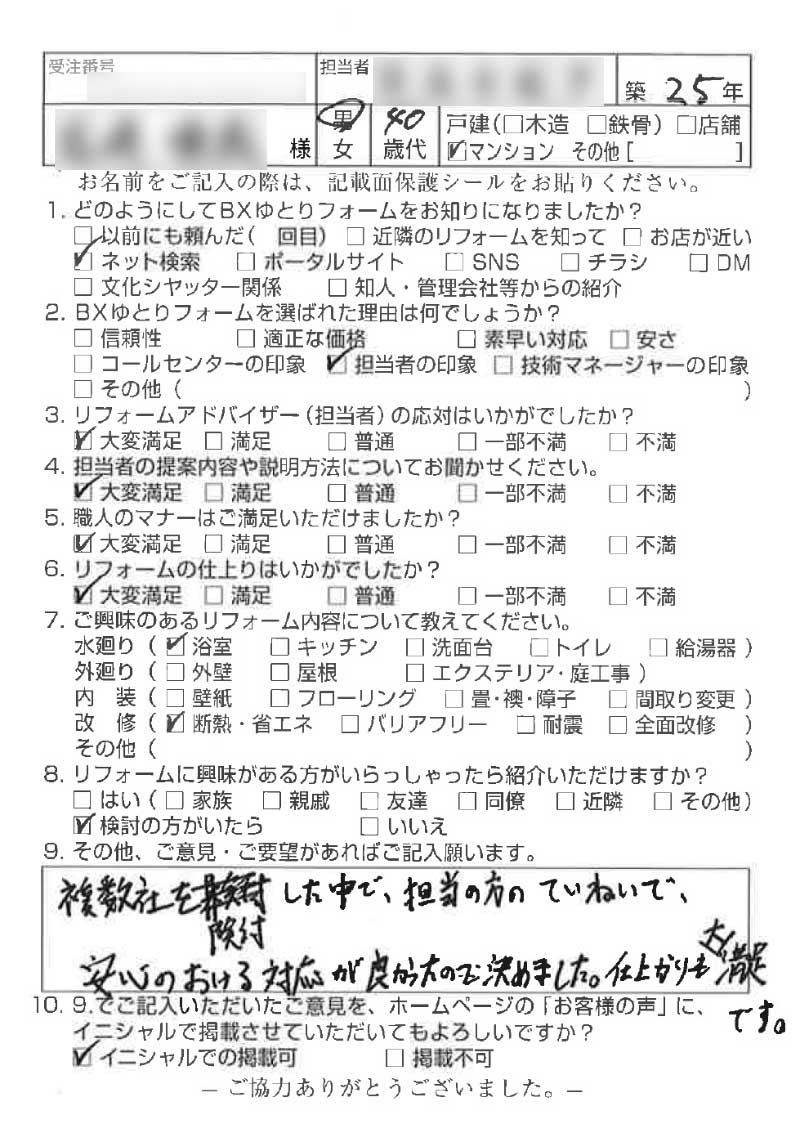 受注番号 担当者 築 25 年
様 男 女 40 歳代 戸建(□木造 □鉄骨) □店舗
☑マンション その他[ ]
お名前をご記入の際は、記載面保護シールをお貼りください。
1. どのようにしてBXゆとりフォームをお知りになりましたか?
□ 以前にも頼んだ( 回目) □ 近隣のリフォームを知って □ お店が近い
☑ ネット検索 □ ポータルサイト □ SNS □ チラシ □ DM
□ 文化シヤッター関係 □ 知人・管理会社等からの紹介
2. BXゆとりフォームを選ばれた理由は何でしょうか?
□ 信頼性 □ 適正な価格 □ 素早い対応 □ 安さ
□ コールセンターの印象 ☑ 担当者の印象 □ 技術マネージャーの印象
□ その他( )
3. リフォームアドバイザー(担当者)の応対はいかがでしたか?
☑ 大変満足 □ 満足 □ 普通 □ 一部不満 □ 不満
4. 担当者の提案内容や説明方法についてお聞かせください。
☑ 大変満足 □ 満足 □ 普通 □ 一部不満 □ 不満
5. 職人のマナーはご満足いただけましたか?
☑ 大変満足 □ 満足 □ 普通 □ 一部不満 □ 不満
6. リフォームの仕上りはいかがでしたか?
☑ 大変満足 □ 満足 □ 普通 □ 一部不満 □ 不満
7. ご興味のあるリフォーム内容について教えてください。
水廻り( ☑ 浴室 □ キッチン □ 洗面台 □トイレ □ 給湯器 )
外廻り( □ 外壁 □ 屋根 □ エクステリア・庭工事 )
内 装( □ 壁紙 □ フローリング □ 畳・襖・障子 □ 間取り変更 )
改 修( ☑ 断熱・省エネ □ バリアフリー □ 耐震 □ 全面改修 )
その他( )
8. リフォームに興味がある方がいらっしゃったら紹介いただけますか?
□ はい( □ 家族 □ 親戚 □ 友達 □ 同僚 □ 近隣 □ その他)
☑ 検討の方がいたら □ いいえ
9. その他、ご意見・ご要望があればご記入願います。
複数社を した中で、担当の方のていねいで、
安心のおける対応が良かったので決めました。仕上がりも大満足
です。
10. 9.でご記入いただいたご意見を、ホームページの「お客様の声」に、
イニシャルで掲載させていただいてもよろしいですか?
☑ イニシャルでの掲載可 □ 掲載不可
― ご協力ありがとうございました。―